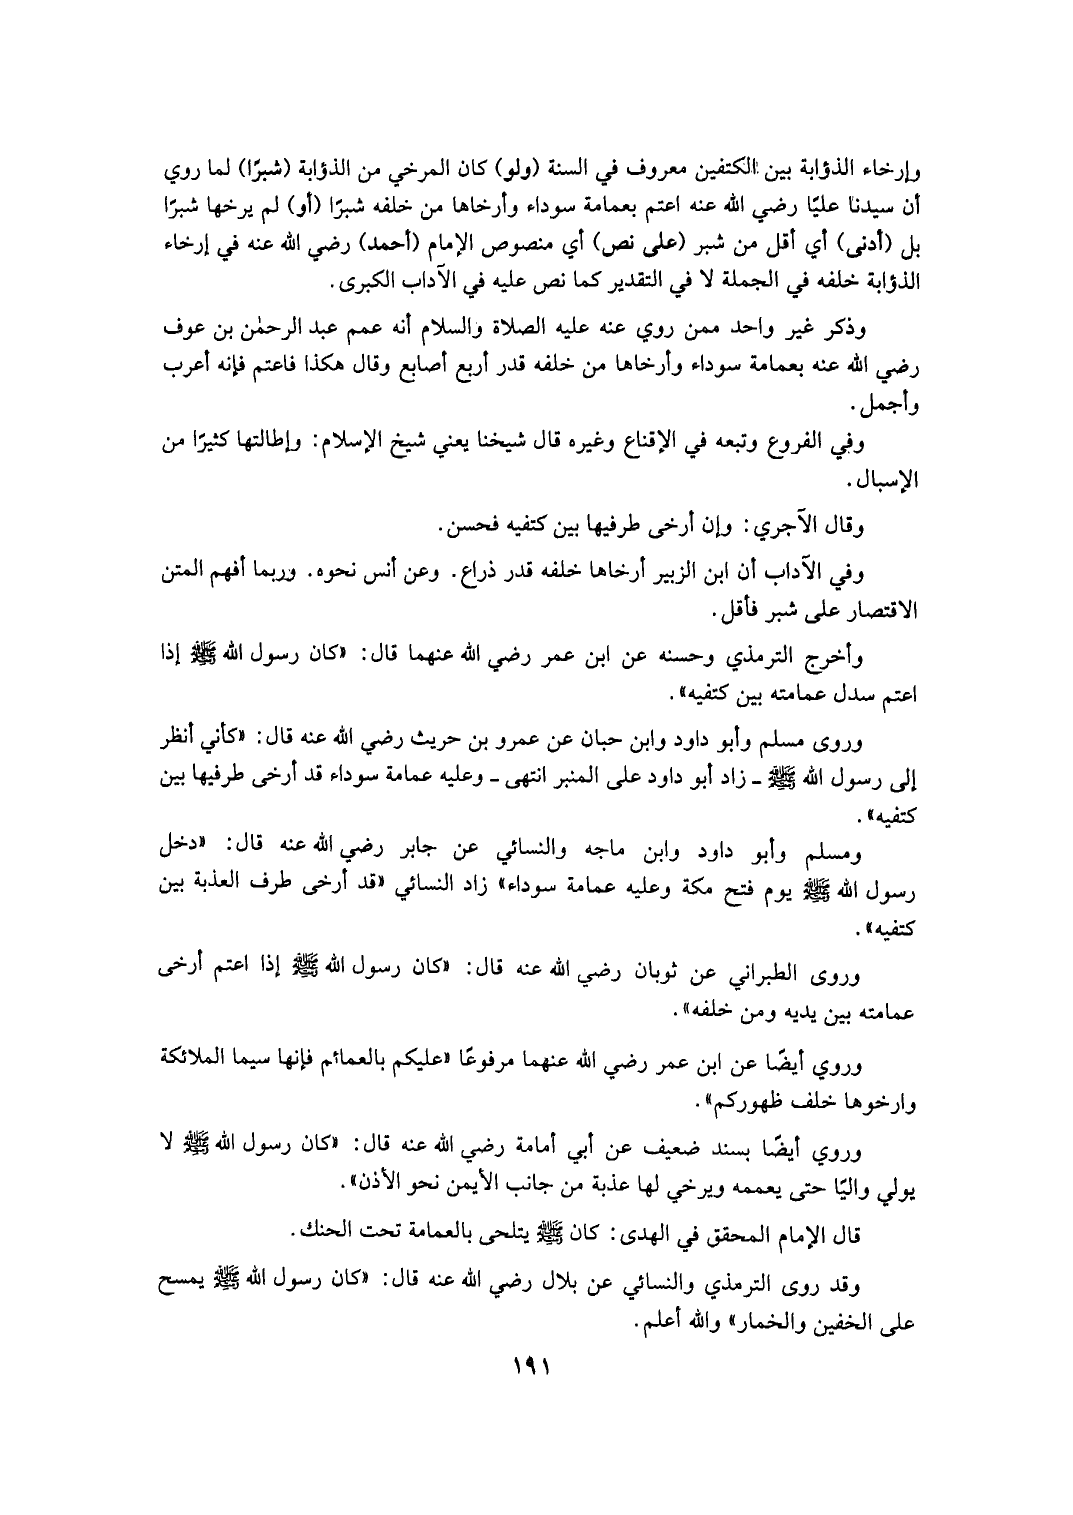 وإرخاء الذؤابة بين الكتفين معروف في السنة (ولو) كان المرخي من الذؤابة (شبرًا) لما روي
أن سيدنا عليًا رضي الله عنه اعتم بعمامة سوداء وأرخاها من خلفه شبرًا (أو) لم يرخها شبرًا
بل (أدنى) أي أقل من شبر (على نص) أي منصوص الإمام (أحمد) رضي الله عنه في إرخاء
الذؤابة خلفه في الجملة لا في التقدير كما نص عليه في الآداب الكبرى.
وذكر غير واحد ممن روي عنه عليه الصلاة والسلام أنه عمم عبد الرحمٰن بن عوف
رضي الله عنه بعمامة سوداء وأرخاها من خلفه قدر أربع أصابع وقال هكذا فاعتم فإنه أعرب
وأجمل.
وفي الفروع وتبعه في الإقناع وغيره قال شيخنا يعني شيخ الإسلام: وإطالتها كثيرًا من
الإسبال.
وقال الآجري: وإن أرخى طرفيها بين كتفيه فحسن.
وفي الآداب أن ابن الزبير أرخاها خلفه قدر ذراع. وعن أنس نحوه. وربما أفهم المتن
الاقتصار على شبر فأقل.
وأخرج الترمذي وحسنه عن ابن عمر رضي الله عنهما قال: «كان رسول الله ﷺ إذا
اعتم سدل عمامته بين كتفيه».
وروى مسلم وأبو داود وابن حبان عن عمرو بن حريث رضي الله عنه قال: «كأني أنظر
إلى رسول الله ﷺ ـ زاد أبو داود على المنبر انتهى ـ وعليه عمامة سوداء قد أرخى طرفيها بين
كتفيه».
ومسلم وأبو داود وابن ماجه والنسائي عن جابر رضي الله عنه قال: «دخل
رسول الله ﷺ يوم فتح مكة وعليه عمامة سوداء» زاد النسائي «قد أرخى طرف العذبة بين
كتفيه».
وروى الطبراني عن ثوبان رضي الله عنه قال: «كان رسول الله ﷺ إذا اعتم أرخى
عمامته بين يديه ومن خلفه».
وروي أيضًا عن ابن عمر رضي الله عنهما مرفوعًا «عليكم بالعمائم فإنها سيما الملائكة
وارخوها خلف ظهوركم».
وروي أيضًا بسند ضعيف عن أبي أمامة رضي الله عنه قال: «كان رسول الله ﷺ لا
يولي واليًا حتى يعممه ويرخي لها عذبة من جانب الأيمن نحو الأذن».
قال الإمام المحقق في الهدى: كان ﷺ يتلحى بالعمامة تحت الحنك.
وقد روى الترمذي والنسائي عن بلال رضي الله عنه قال: «كان رسول الله ﷺ يمسح
على الخفين والخمار» والله أعلم.
١٩١